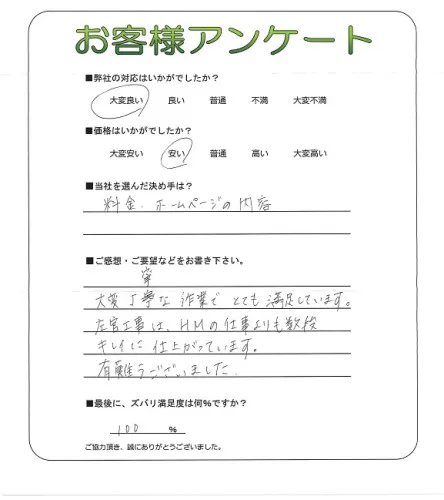 お客様アンケート
■弊社の対応はいかがでしたか？
大変良い 良い 普通 不満 大変不満
■価格はいかがでしたか？
大変安い 安い 普通 高い 大変高い
■当社を選んだ決め手は？
料金・ホームページの内容
■ご感想・ご要望などをお書き下さい。
寧
大変丁寧な作業でとても満足しています。
左官工事は、HMの仕事よりも数段
キレイに仕上がっています。
有難うございました。
■最後に、ズバリ満足度は何%ですか？
100 %
ご協力頂き、誠にありがとうございました。